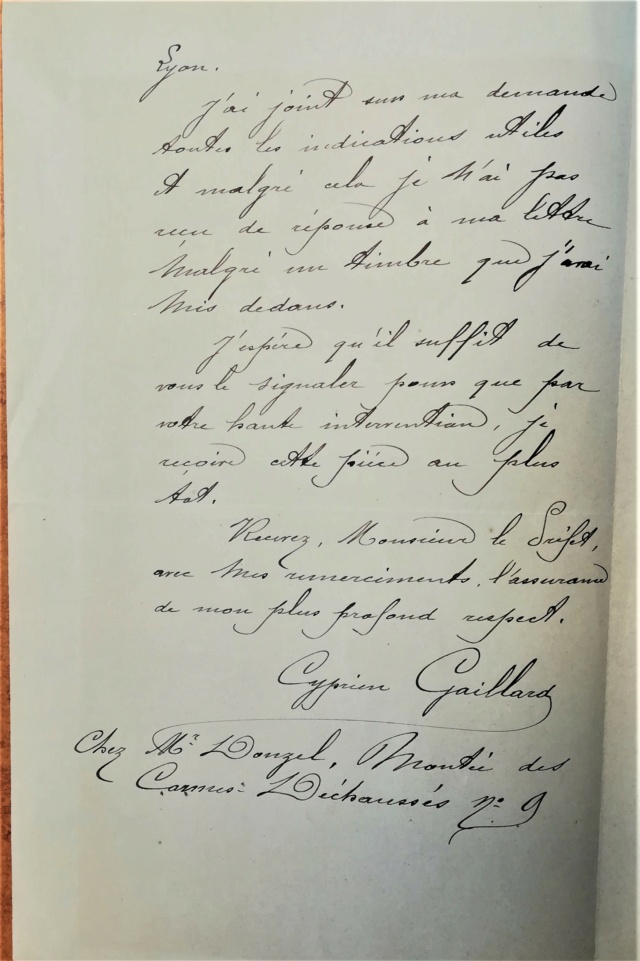 Lyon.
J'ai joint sur ma demande
toutes les indications utiles
et malgré cela je n'ai pas
reçu de réponse à ma lettre
malgré un timbre que j'avai
mis dedans.
J'espère qu'il suffit de
vous le signaler pour que par
votre haute intervention, je
reçoive cette pièce au plus
tôt.
Recevez, Monsieur le Préfet,
avec mes remerciments, l'assurance
de mon plus profond respect.
Cyprien Gaillard
Chez Mr. Donzel, Montée des
Carmes-Déchaussés no 9